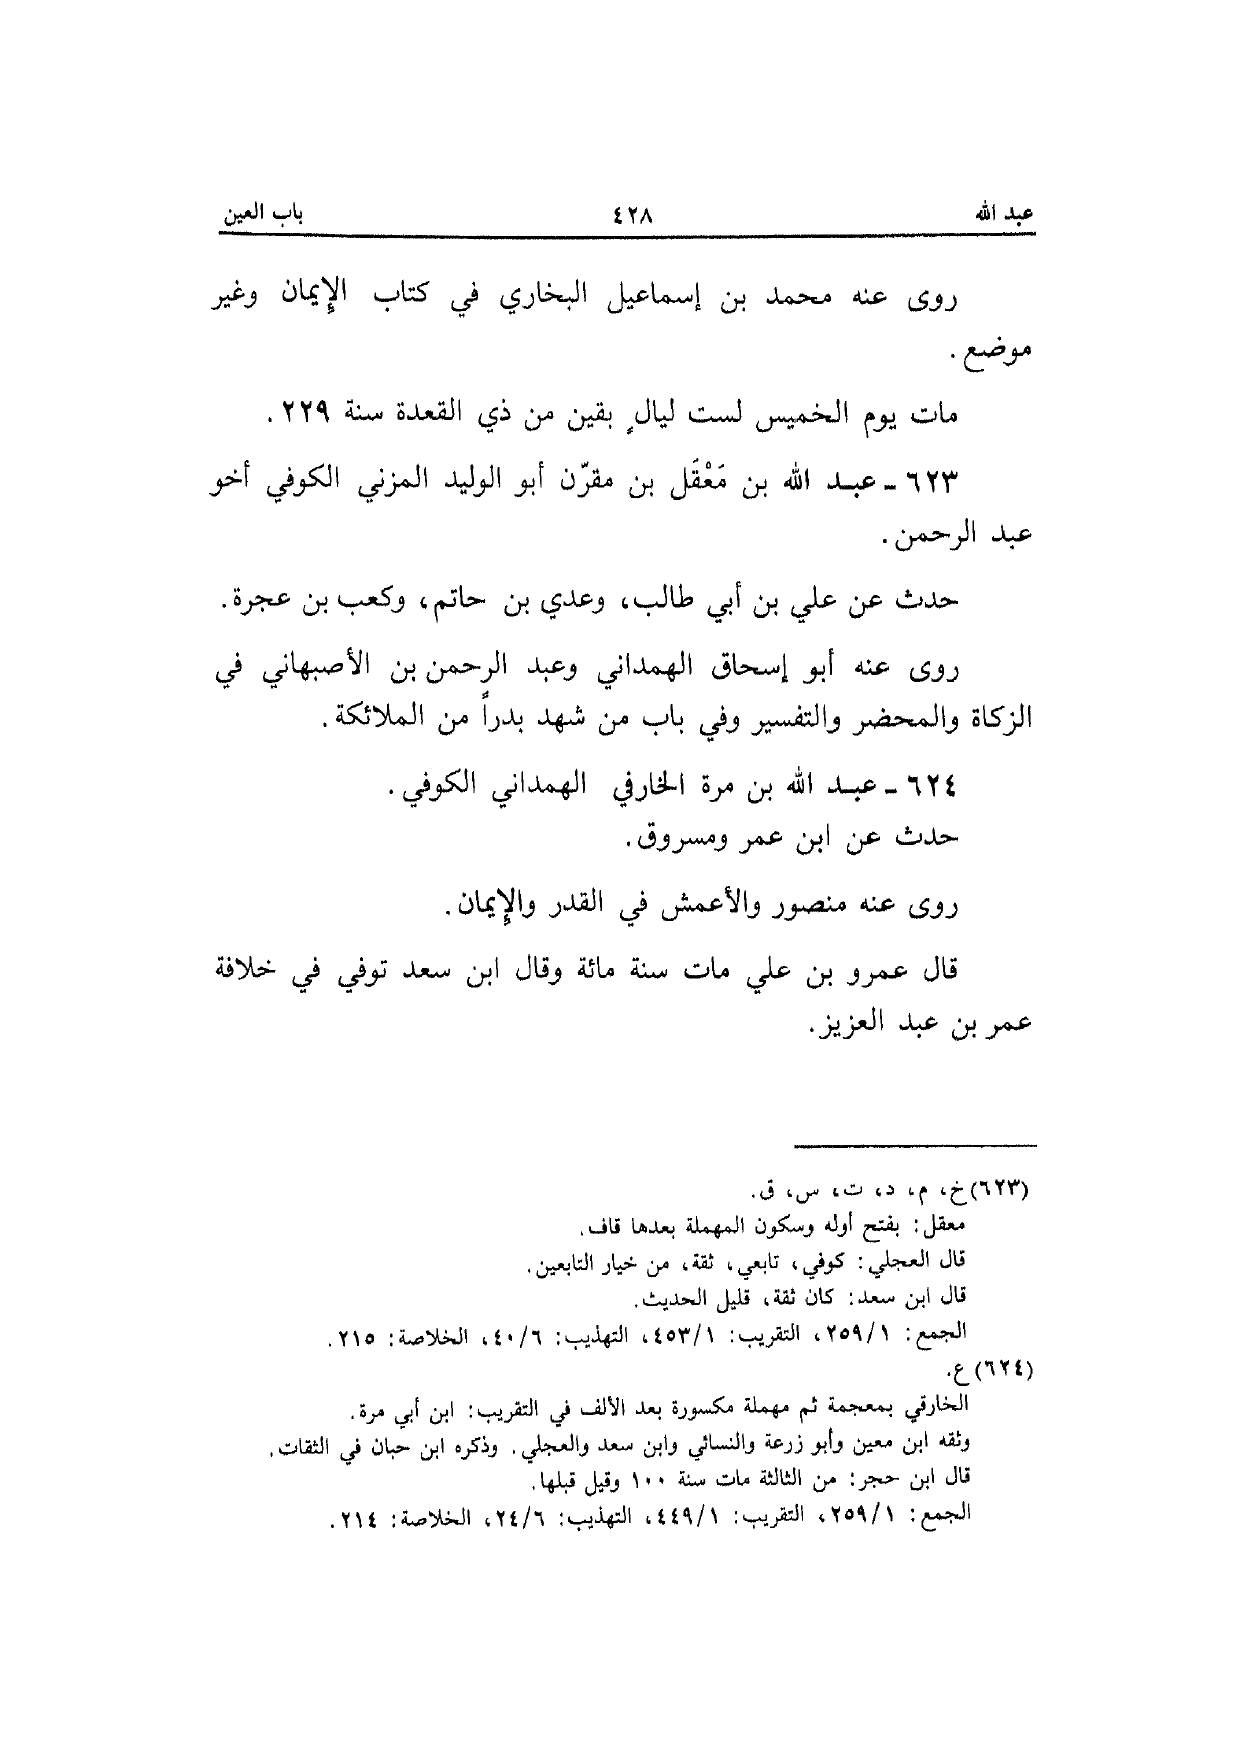 عبد الله ٤٢٨ باب العين
روى عنه محمد بن إسماعيل البخاري في كتاب الإيمان وغير
موضع.
مات يوم الخميس لست ليالٍ بقين من ذي القعدة سنة ٢٢٩.
٦٢٣ ـ عبد الله بن مَعْقَل بن مقرّن أبو الوليد المزني الكوفي أخو
عبد الرحمن.
حدث عن علي بن أبي طالب، وعدي بن حاتم، وكعب بن عجرة.
روى عنه أبو إسحاق الهمداني وعبد الرحمن بن الأصبهاني في
الزكاة والمحضر والتفسير وفي باب من شهد بدراً من الملائكة.
٦٢٤ ـ عبد الله بن مرة الخارفي الهمداني الكوفي.
حدث عن ابن عمر ومسروق.
روى عنه منصور والأعمش في القدر والإيمان.
قال عمرو بن علي مات سنة مائة وقال ابن سعد توفي في خلافة
عمر بن عبد العزيز.
(٦٢٣) خ، م، د، ت، س، ق.
معقل: بفتح أوله وسكون المهملة بعدها قاف.
قال العجلي: كوفي، تابعي، ثقة، من خيار التابعين.
قال ابن سعد: كان ثقة، قليل الحديث.
الجمع: ٢٥٩/١، التقريب: ٤٥٣/١، التهذيب: ٤٠/٦، الخلاصة: ٢١٥.
(٦٢٤) ع.
الخارقي بمعجمة ثم مهملة مكسورة بعد الألف في التقريب: ابن أبي مرة.
وثقه ابن معين وأبو زرعة والنسائي وابن سعد والعجلي. وذكره ابن حبان في الثقات.
قال ابن حجر: من الثالثة مات سنة ١٠٠ وقيل قبلها.
الجمع: ٢٥٩/١، التقريب: ٤٤٩/١، التهذيب: ٢٤/٦، الخلاصة: ٢١٤.